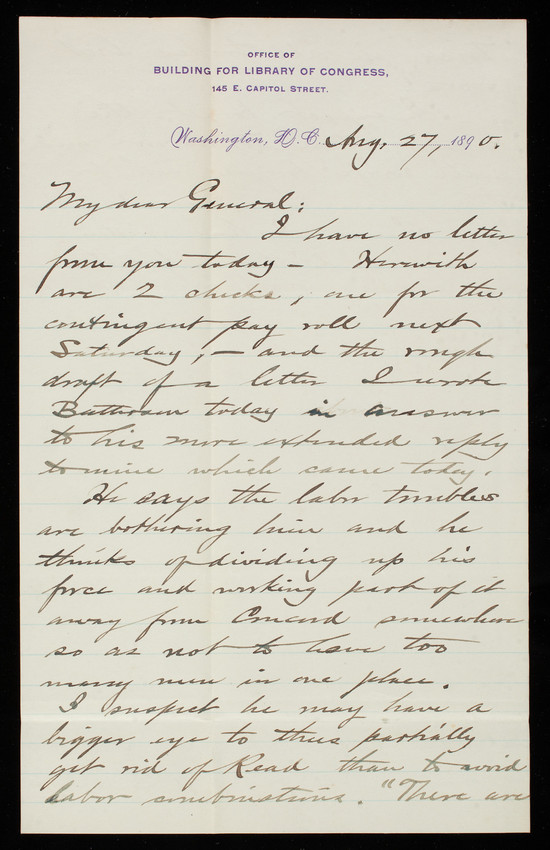 OFFICE OF
BUILDING FOR LIBRARY OF CONGRESS,
145 E. CAPITOL STREET.
Washington, D. C. Aug. 27, 1890.
My dear General:
I have no letter
from you today – Herewith
are 2 checks, one for the
contingent pay roll next
Saturday, – and the rough
draft of a letter I wrote
Batterson today in answer
to his more extended reply
to mine which came today.
He says the labor troubles
are bothering him and he
thinks of dividing up his
force and working part of it
away from Concord somewhere
so as not to have too
many men in one place.
I suspect he may have a
bigger eye to thus partially
get rid of Read than to avoid
labor combinations. "There are